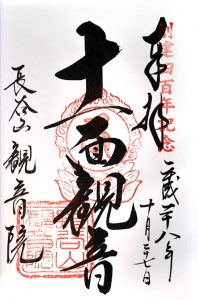 創建四百年記念
奉拝
平成二十八年
十月二十七日
十一面観音
長谷山 観音院